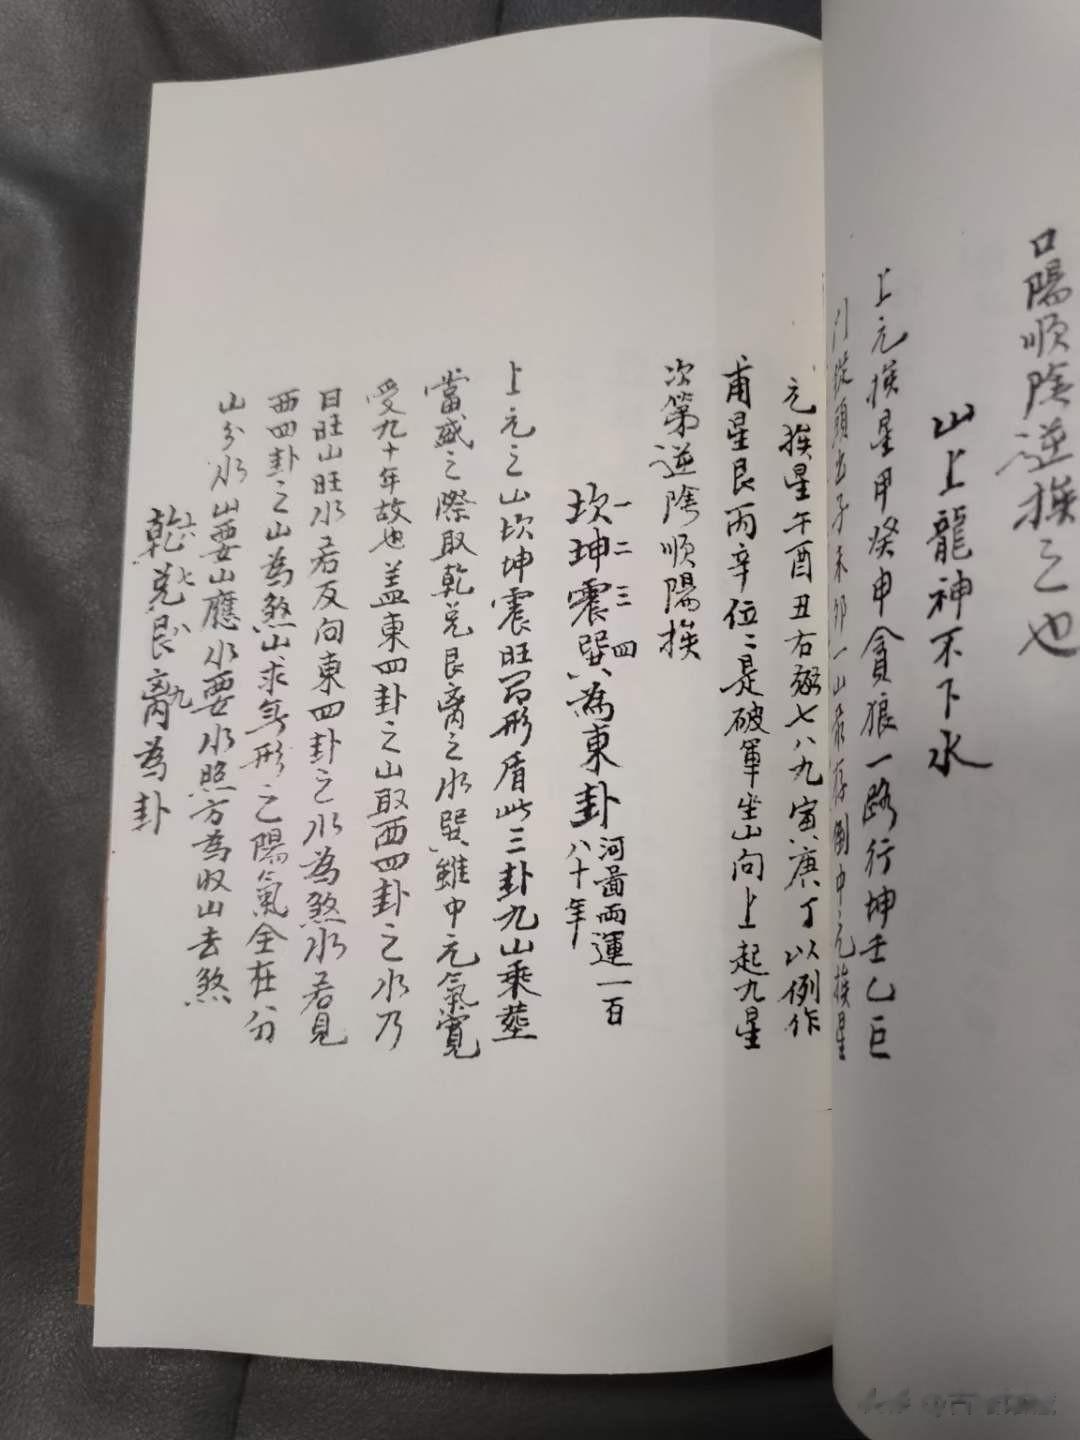 陽順陰逆挨之也
山上龍神不下水
上元挨星甲癸申貪狼一路行坤壬乙巨
門從頭出子未卯一山祿存倒中元挨星
元挨星午酉丑右弼七八九寅庚丁以例作
甫星艮丙辛位〻是破軍坐山向上起九星
次第逆陰順陽挨
坎坤震巽為東卦
一二三四
河畕兩運一百
八十年
上元之山坎坤震旺局形盾此三卦九山乘塟
當盛之際取乾兌艮离之水巽雖中元氣寬
受九十年故也盖東四卦之山取西四卦之水乃
曰旺山旺水若反向東四卦之水為煞水若見
西四卦之山為煞山求無形之陽氣全在分
山分水山要山應水要水照方為收山去煞
乾兌艮离為卦
六七八九